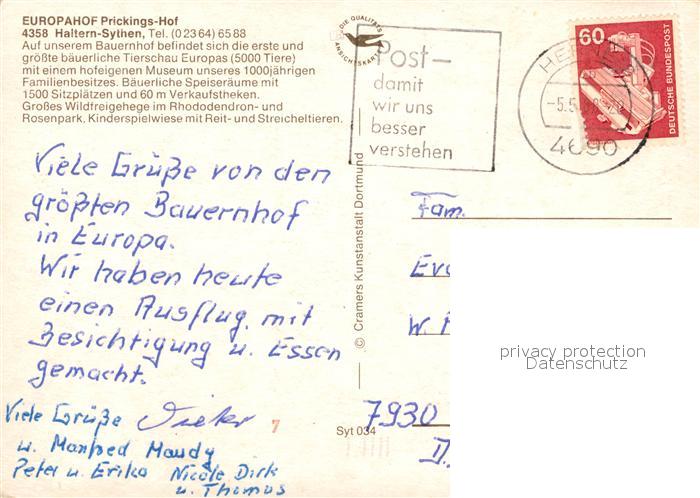 EUROPAHOF Prickings-Hof
4358 Haltern-Sythen, Tel. (02364) 6588
Auf unserem Bauernhof befindet sich die erste und
größte bäuerliche Tierschau Europas (5000 Tiere)
mit einem hofeigenen Museum unseres 1000jährigen
Familienbesitzes. Bäuerliche Speiseräume mit
1500 Sitzplätzen und 60 m Verkaufstheken.
Großes Wildfreigehege im Rhododendron- und
Rosenpark. Kinderspielwiese mit Reit- und Streicheltieren.
DIE QUALITÄTS
ANSICHTSKARTE
Post-
damit
wir uns
besser
verstehen
-5.5.
4690
60
DEUTSCHE BUNDESPOST
Viele Grüße von den
größten Bauernhof
in Europa.
Wir haben heute
einen Ausflug mit
Besichtigung u. Essen
gemacht.
Viele Grüße Dieter
u. Manfred Maudy
Peter u. Erika Nicole Dirk
u. Thomas
© Cramers Kunstanstalt Dortmund
7
Syt 034
Fam.
W.
7930
privacy protection
Datenschutz